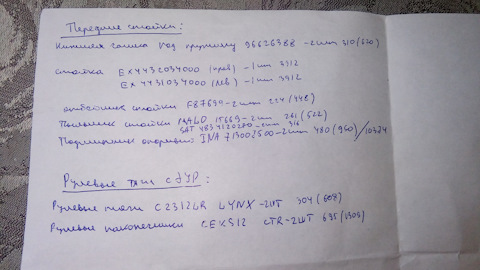 Передние стойки:
Нижняя чашка под пружину 96626388 - 2шт 310 (620)
Стойка EX4432034000 (прав) - 1шт 3912
EX4431034000 (лев) - 1шт 3912
отбойник стойки F87699 - 2шт 224 (448)
Пыльник стойки MALO 15669 - 2шт 261 (522)
SAT 4834120280 - 2шт 316
Подшипник опорный INA 713002500 - 2шт 480 (960) / 10374
Рулевые тяги с ГУР:
Рулевые тяги C2312LR LYNX - 2шт 304 (608)
Рулевые наконечники CEKS12 CTR - 2шт 695